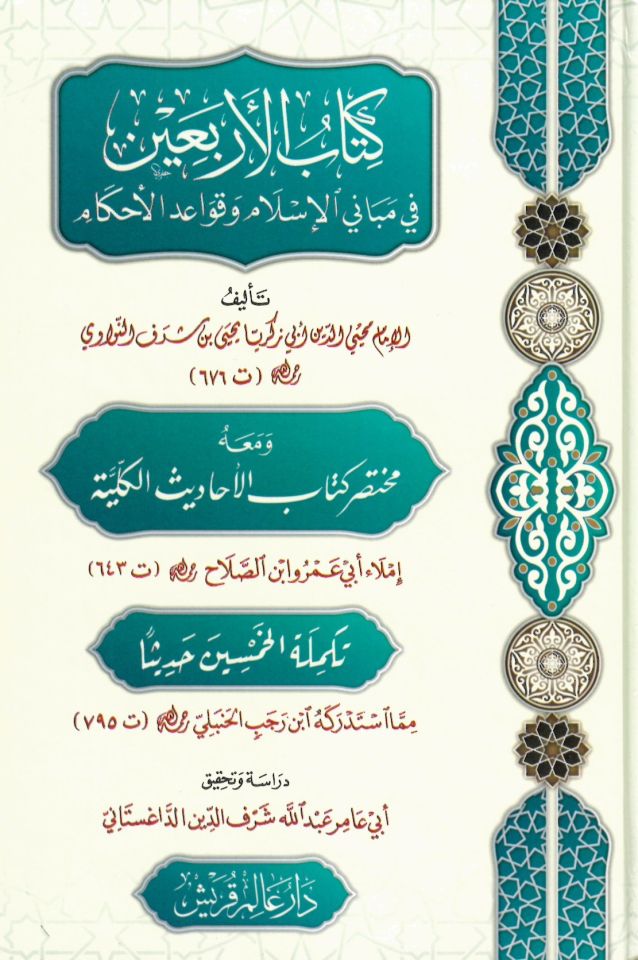 كِتَابُ الأَرْبَعِيْن
فِي مَبَانِي الإِسْلَام وَقَوَاعِد الأَحْكَامِ
تَأليفُ
الإمام محيي الدين أبي زكريا يحيى بن شرف النواوي
رحمه الله (ت ٦٧٦)
وَمَعَهُ
مختصر كتاب الأحاديث الكليّة
إِمْلَاء أَبِي عَمْرو ابْن الصَّلَاح رحمه الله (ت ٦٤٣)
تكمِلَة الخَمْسِين حَدِيثًا
مِمَّا اسْتَدْرَكَهُ ابْن رَجَبٍ الحَنْبَلِيّ رحمه الله (ت ٧٩٥)
دِرَاسَة وَتَحْقِيق
أَبِي عَامِر عَبْد الله شَرَف الدِّين الدَّاغِسْتَانِيّ
دَارُ عَالِم قُرَيْش